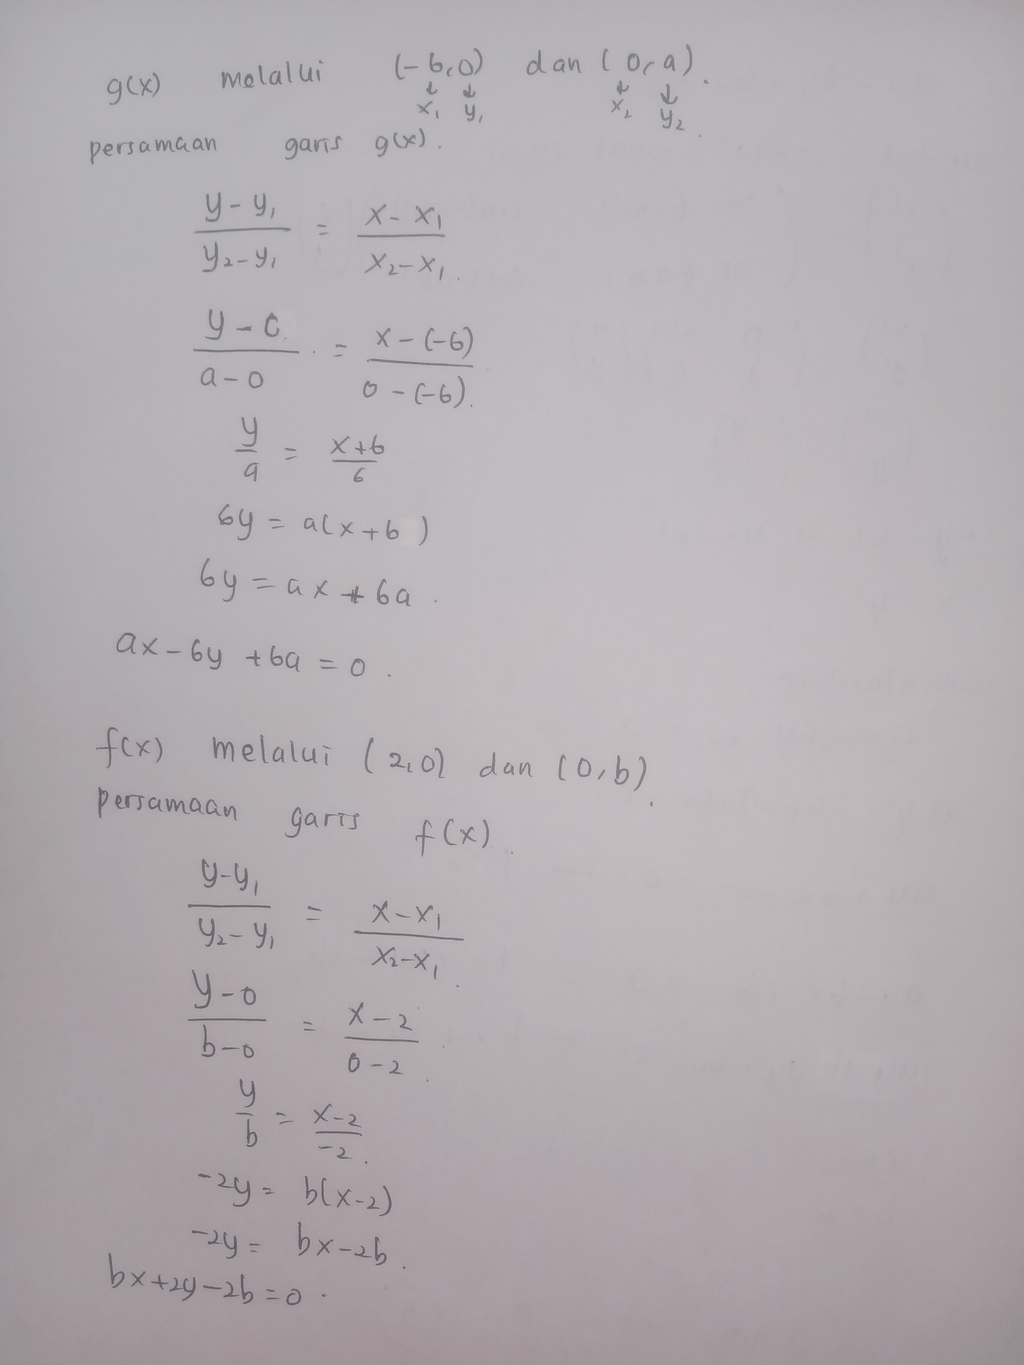 g(x) melalui (-6,0) dan (0,a).
↓ ↓ ↓ ↓
x₁ y₁ x₂ y₂.
persamaan garis g(x).
y-y₁ / y₂-y₁ = x-x₁ / x₂-x₁.
y-0 / a-0 = x-(-6) / 0-(-6).
y/a = x+6 / 6
6y = a(x+6)
6y = ax + 6a.
ax-6y+6a = 0.
f(x) melalui (2,0) dan (0,b).
persamaan garis f(x).
y-y₁ / y₂-y₁ = x-x₁ / x₂-x₁.
y-0 / b-0 = x-2 / 0-2.
y/b = x-2 / -2.
-2y = b(x-2)
-2y = bx-2b.
bx+2y-2b=0.